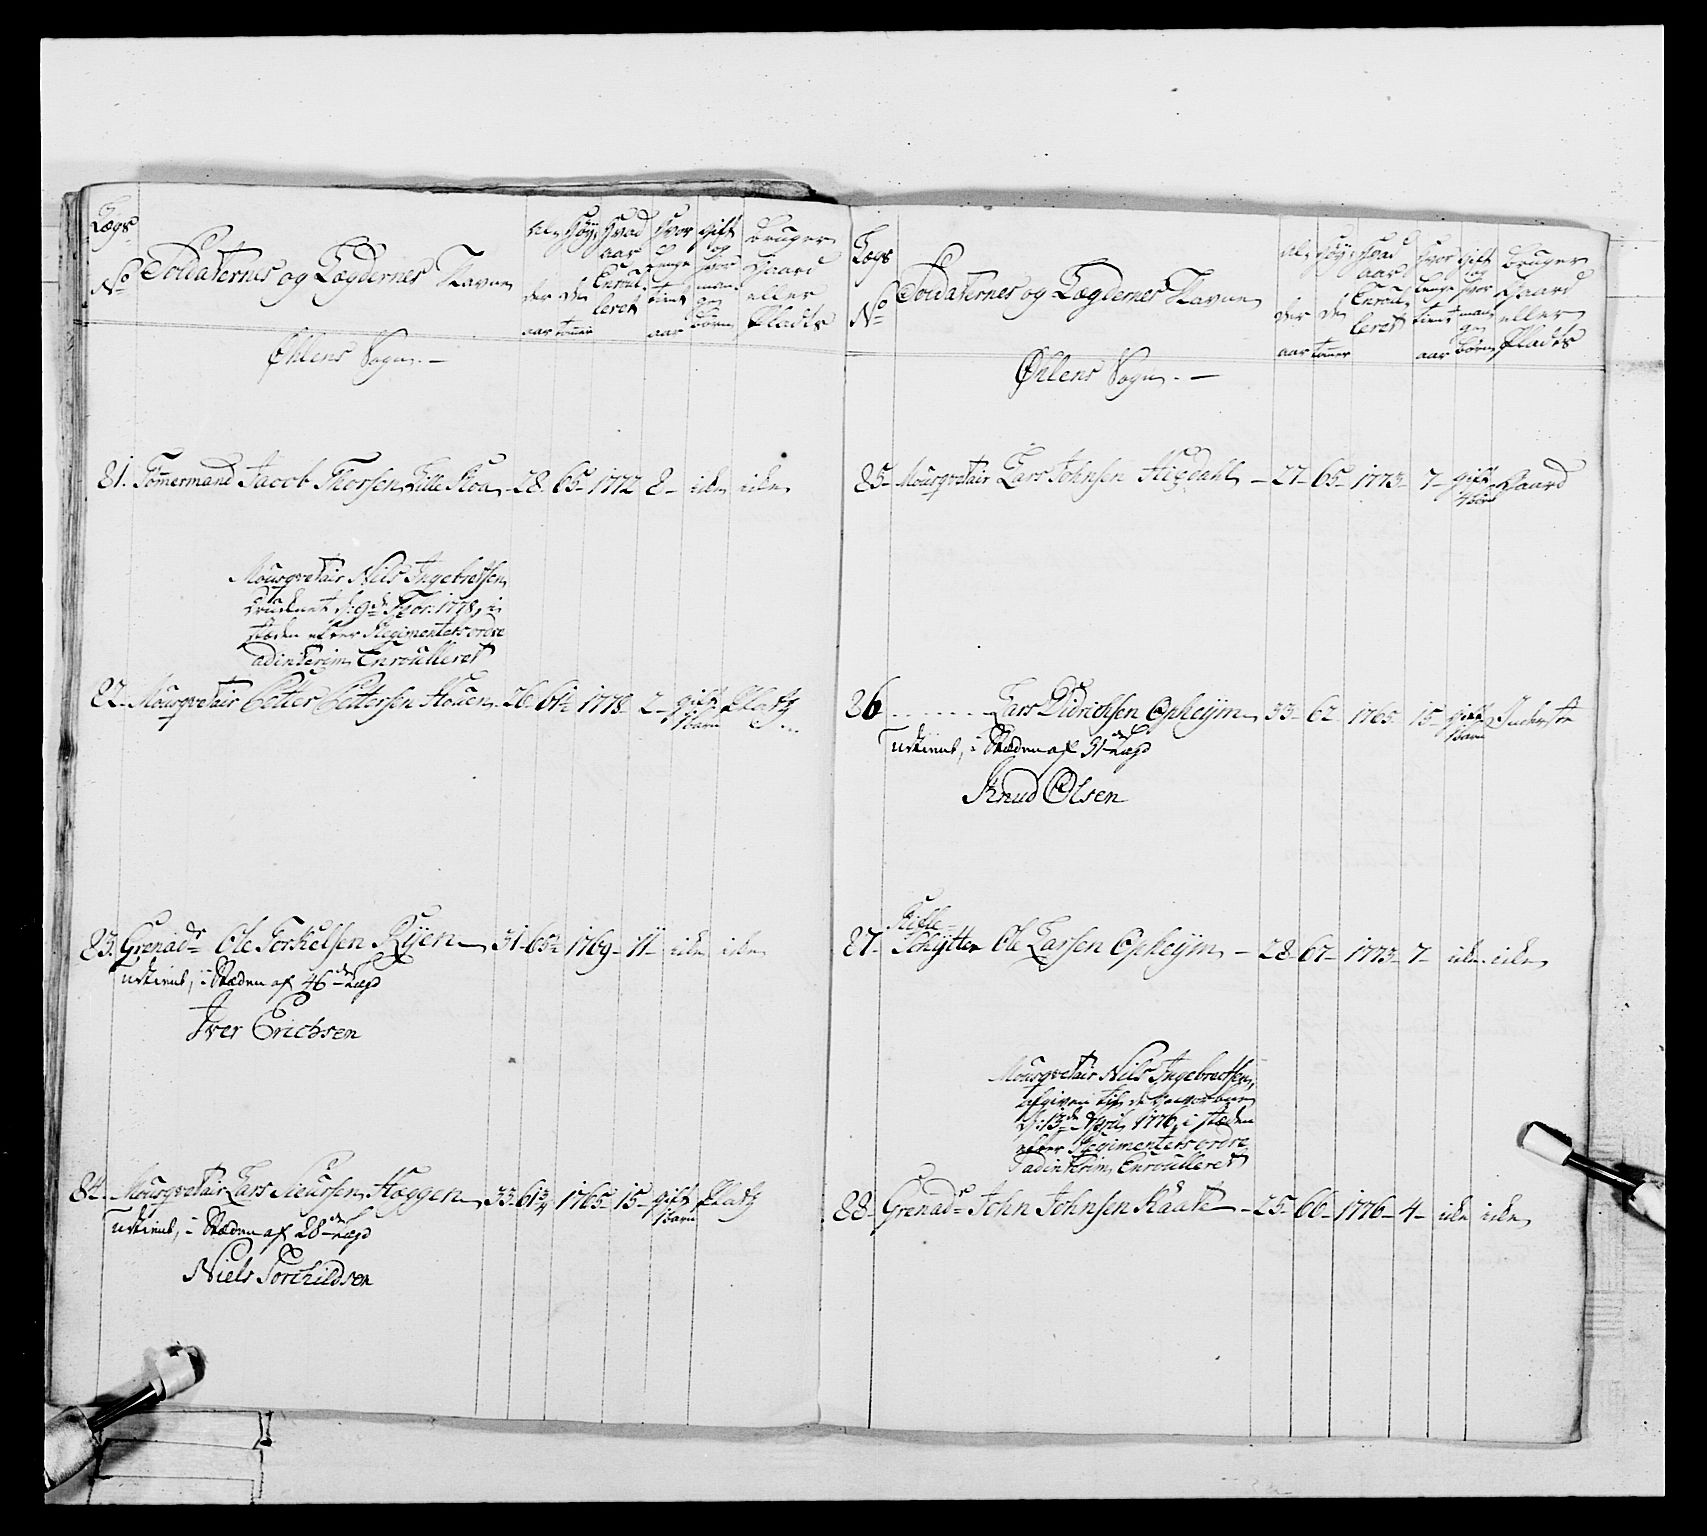 Lægs
No
Soldaternes og Lægdernes Navne
Al- der aar
Høy- den tomer
Hvad aar Enroul- leret
Hvor lenge tient aar
Gift og hvor mange Børn
Bruger Gaard eller Pladts
Øhlens Sogn. —
81. Tømermand Jacob Thorsen Lille Moa - 28. 65- 1772 8- icke icke
Mousqvetair Nils Ingebretsen
d: 9de 1778, i
stæden efter Regimentets ordre
adinterim Enroulleret
82. Mousqvetair Petter Pettersen Houen. 26. 61½ 1778- 2- gift 1 barn Platz
83. Grenadr Ole Torkelsen Ryen - 31- 65½ 1769- 11- icke icke
udskreve, i Stæden af 46de Lægd
Iver Erichsen
84. Mousqvetair Lars Siursen Hoggen 33. 61¾ 1765- 15- gift 1 barn Platz
udskreve, i Stæden af 28de Lægd
Niels Torchildsen
Lægs
No
Soldaternes og Lægdernes Navne
Al- der aar
Høy- den tomer
Hvad aar Enroul- leret
Hvor lenge tient aar
Gift og hvor mange Børn
Bruger Gaard eller Pladts
Øhlens Sogn. —
85- Mousqvetair Lars Johnsen Hiedahl - 27- 65- 1773- 7- gift Gaard
86 - - - - - Lars Didrichsen Opheym - 33- 62- 1765- 15- gift 1 barn Inderste
udskreve, i Stæden af 31de Lægd
Knud Olsen
87- Schytter Ole Larsen Opheym - 28- 67- 1773- 7- icke. icke
Mousqvetair Nils Ingebretsen,
afgiven til
d: 13de April 1776, i stæden
efter Regimentets ordre
adinterim Enroulleret
88- Grenadr John Johnsen Kaate - 25- 66- 1776- 4- icke icke